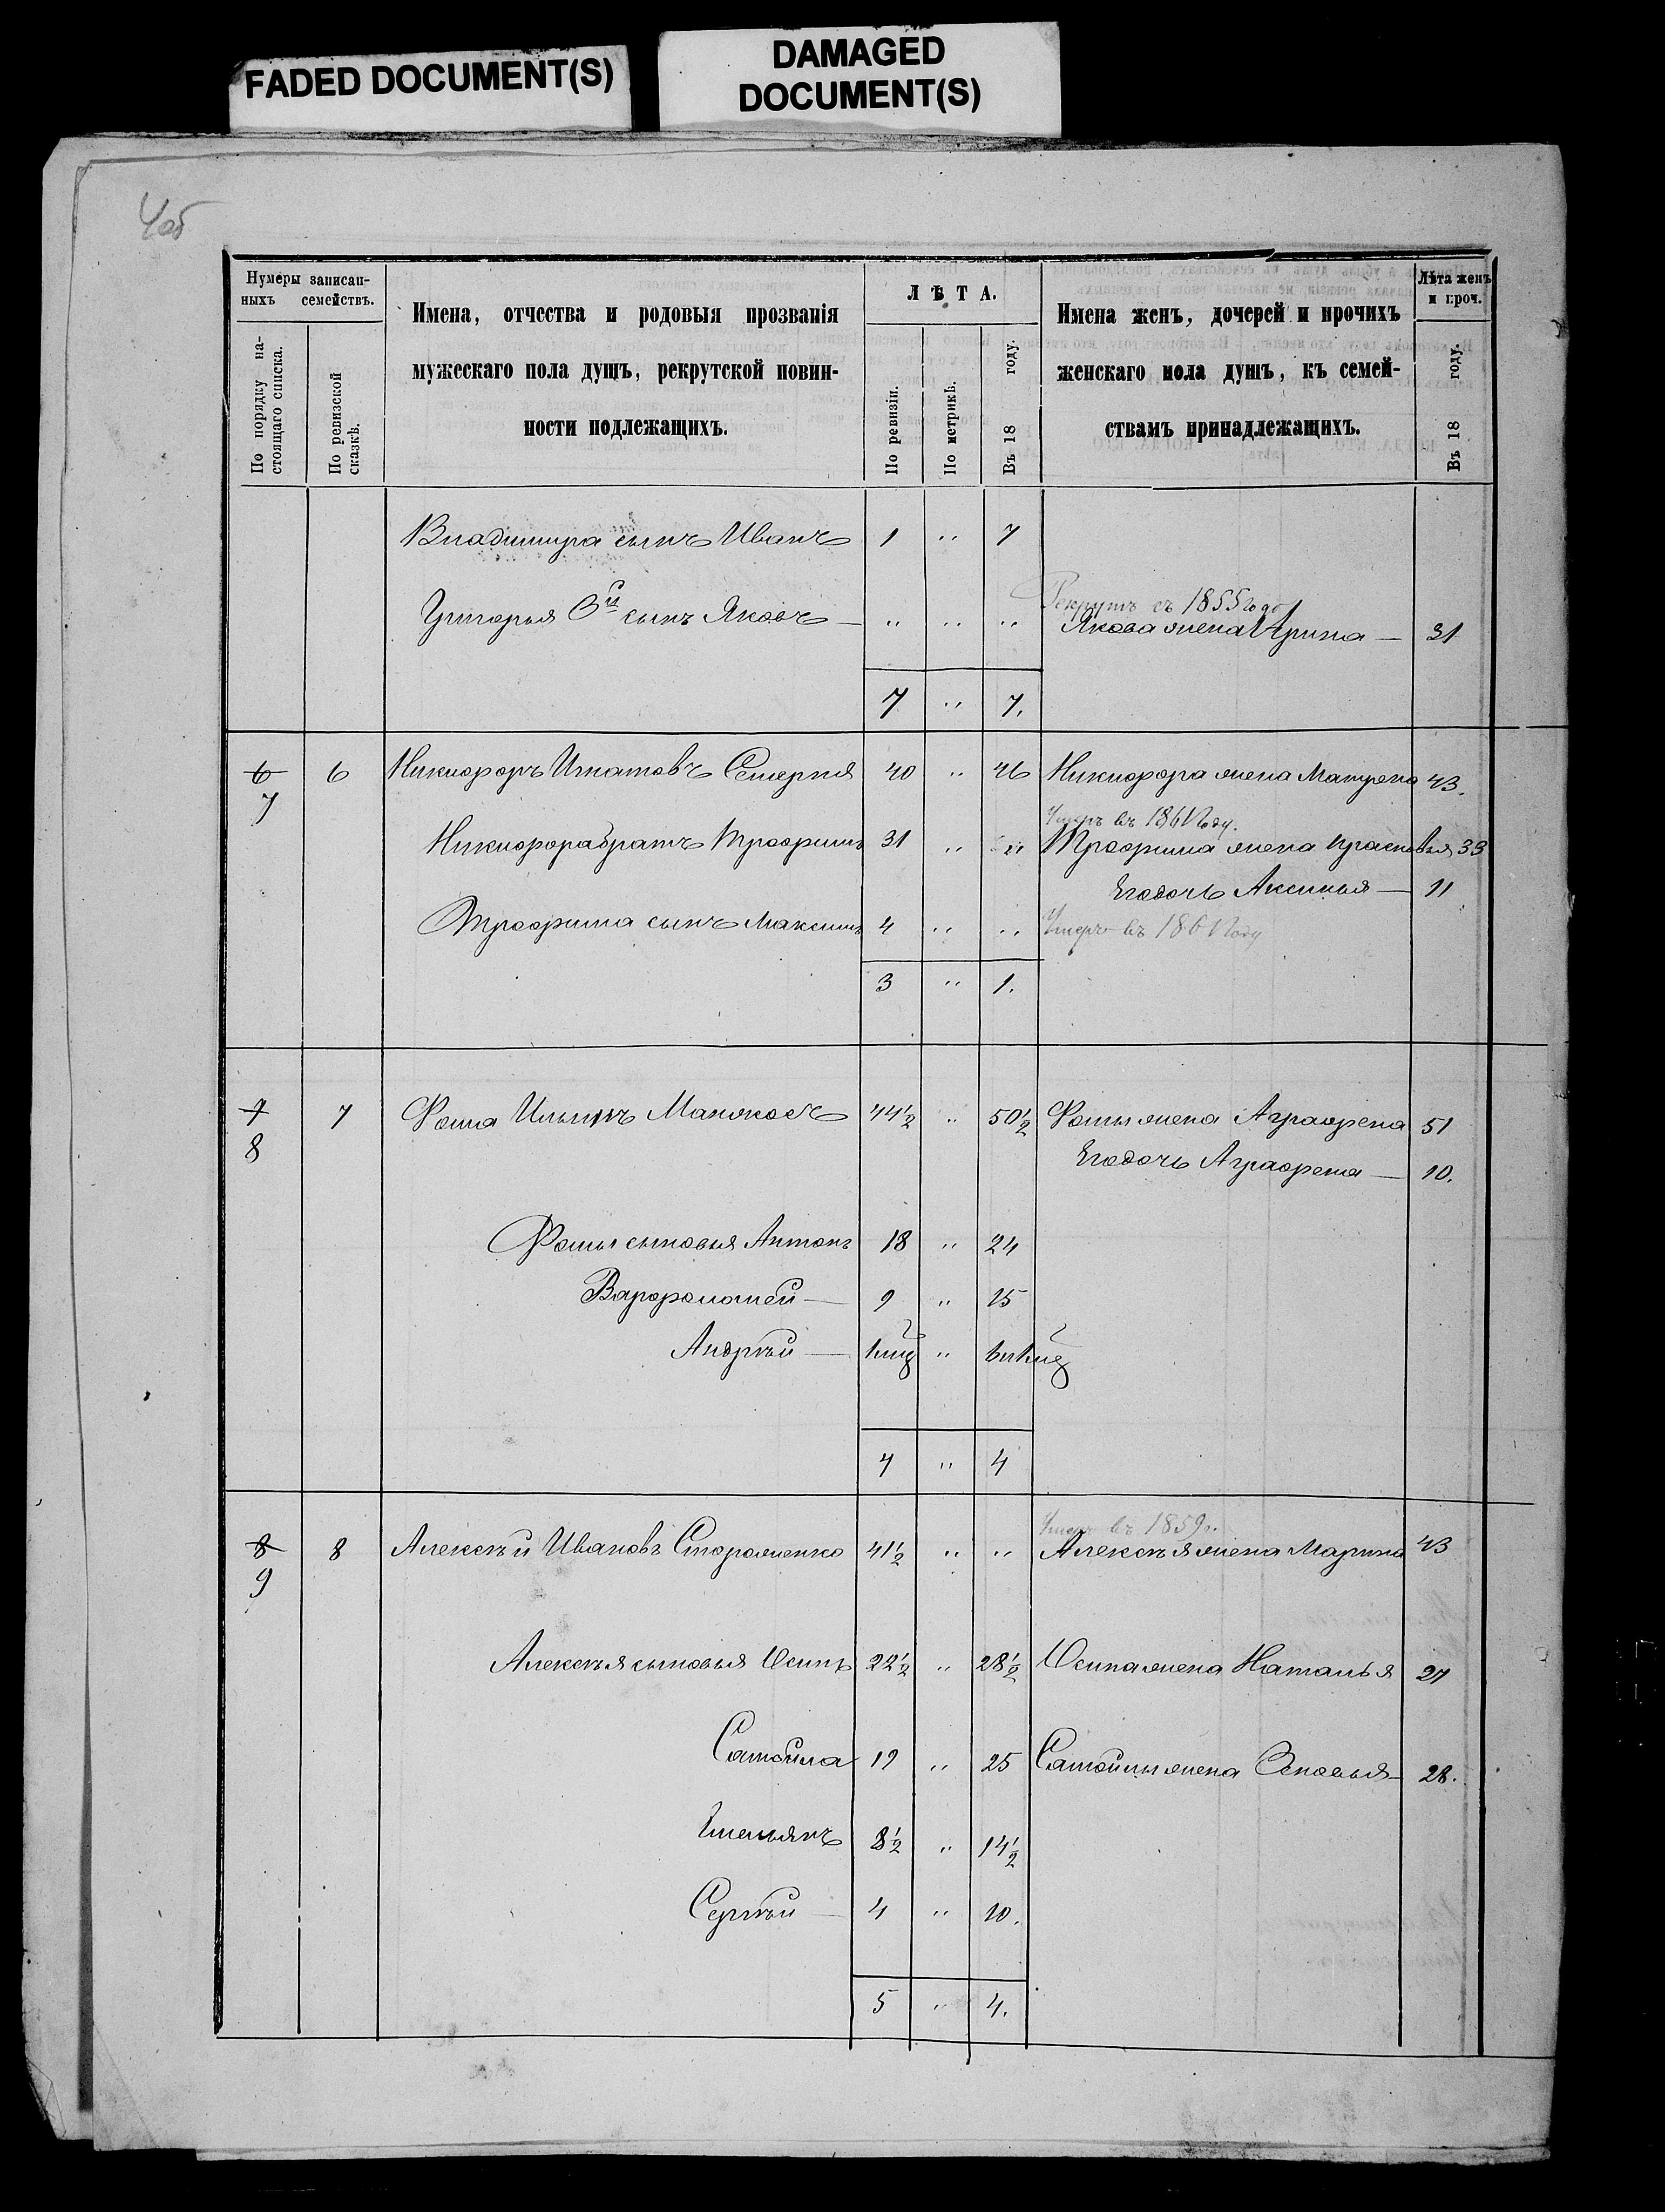 FADED DOCUMENT(S)
DAMAGED
DOCUMENT(S)
4об
Нумеры записан-
ныхъ семействъ.
По порядку на-
стоящаго списка.
По ревизской
сказкѣ.
Имена, отчества и родовыя прозванія
мужескаго пола душъ, рекрутской повин-
ности подлежащихъ.
ЛѢТА.
По ревизіи.
По метрикѣ.
Въ 18 году.
Имена женъ, дочерей и прочихъ
женскаго пола душъ, къ семей-
ствамъ принадлежащихъ.
Лѣта женъ
и проч.
Въ 18 году.
Владимира сынъ Иванъ 1 " 7
Рекрутъ съ 1855 года
Григорья 3й сынъ Яковъ — " " " Якова жена Арина — 31
7 " 7.
6 6 Никифоръ Игнатовъ 40 " 46 Никифора жена Матрена 43.
7
Умеръ въ 1861 году.
Никифора братъ Трофимъ 31 " " Трофима жена Прасковья 33
Его дочь Аксинья — 11
Трофима сынъ Максимъ 4 " " Умеръ въ 1861 году
3 " 1.
7 7 Фома Ильинъ 44½ " 50½ Фомы жена Аграфена 51
8
Его дочь Аграфена — 10.
Фомы сыновья Антонъ 18 " 24
Варфоломей — 9 " 15
Андрѣй — "
4 " 4
Умеръ въ 1859 г.
8 8 Алексѣй Ивановъ Стороженко 41½ " " Алексѣя жена Марина 43
9
Алексѣя сыновья Осипъ 22½ " 28½ Осипа жена Наталья 27
Самойла 19 " 25 Самойлы жена Зеновья — 28.
Емельянъ 8½ " 14½
Сергѣй — 4 " 10.
5 " 4.